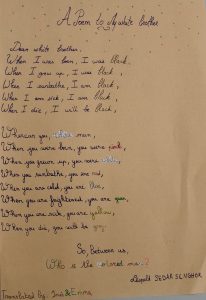 A Poem to My white Brother
Dear white brother,
When I was born, I was Black,
When I grew up, I was Black,
When I sunbathe, I am Black,
When I am sick, I am Black,
When I die, I will be Black,
Whereas you, white man,
When you were born, you were pink,
When you grown up, you were white,
When you sunbathe, you are red,
When you are cold, you are blue,
When you are frightened, you are green,
When you are sick, you are yellow,
When you die, you will be grey.
So, Between us,
Who is the colored man?
Léopold SEDAR SENGHOR
Translated by: & Emma